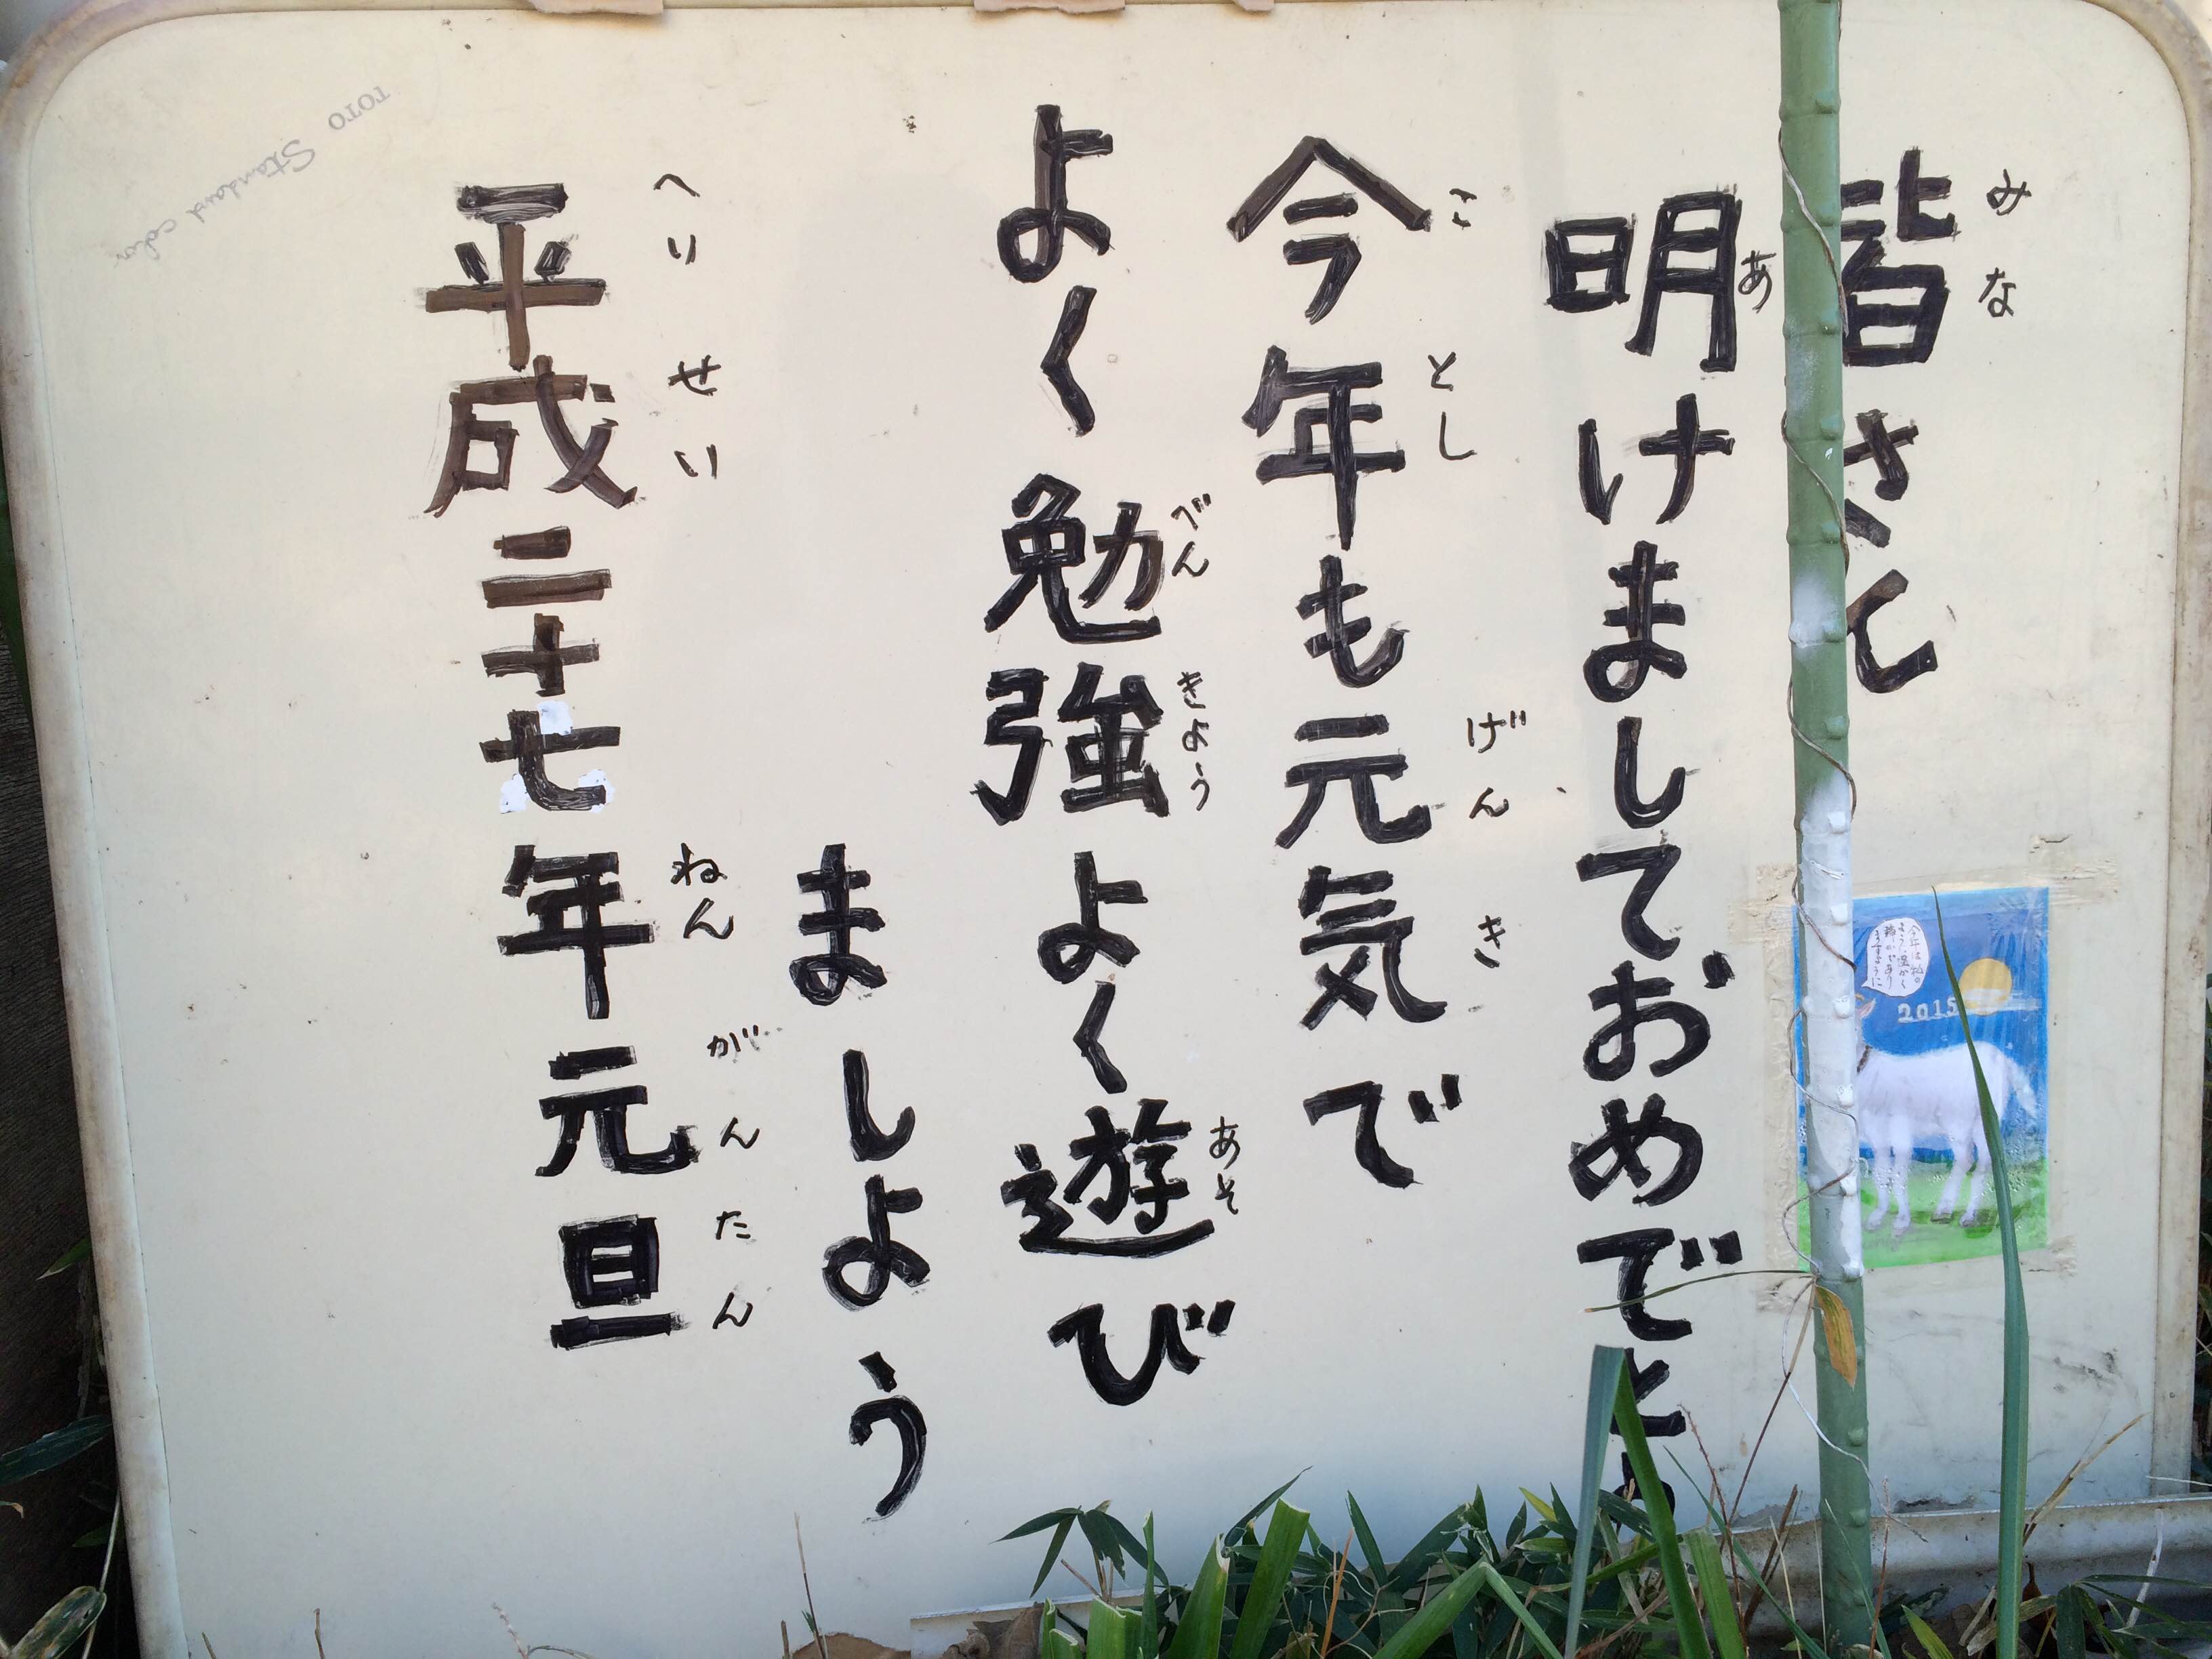 皆さん
みな
明けましておめでとう
あ
今年も元気で
ことし げんき
よく勉強よく遊び
べんきょう あそ
ましょう
平成二十七年元旦
へいせい ねん がんたん
2015
TOTO Standard color